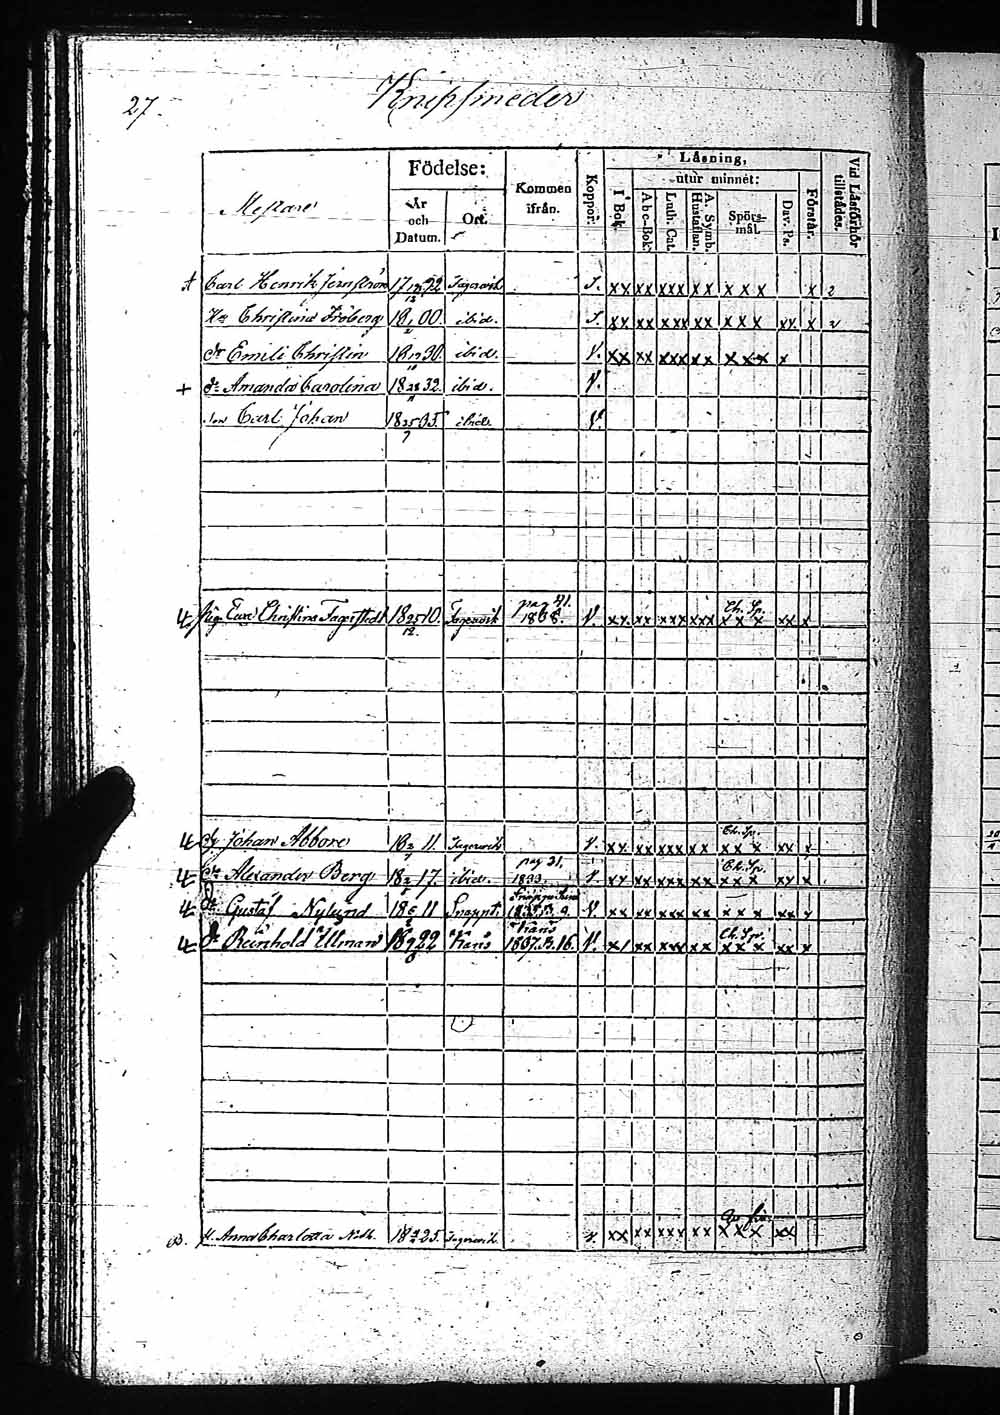 27.
Knipsmeder
Mestare
Födelse:
År och Datum.
Ort.
Kommen ifrån.
Koppor.
Läsning,
utur minnet:
I Bok.
Abc-Bok.
Luth. Cat.
A. Symb. Hustaflan.
Spörs-mål.
Dav. Ps.
Förstår.
Vid Läsförhör tillstädes.
Carl Henrik Jernström 17 18/12 92 Fagervik S. xx xx xxx xx x x x x 2
Christina Fröberg 18 00 ibid. S. xx xx xxx xx x x x xx x 2
dr Emili Christin 18 30 ibid. V. xx xx xxx xx x x x x
+ dr Amanda Carolina 18 28/11 32 ibid. V.
son Carl Johan 18 25/7 35 ibid. V.
Eva Christina Fagerstedt 18 25/12 10. Fagervik pag 41. 1838. V. xx xx xxx xxx Ch. Sp. x x x xx x
Johan Abbore 18 11. Fagervik V. xx xx xxx xx Ch. Sp. x x x xx x
Alexander Berg 18 17. ibid. pag 21. 1833. V. xx xx xxx xx Ch. Sp. x x x xx x
Gustaf Nylund 18 11 Snappt. V. xx xx xxx xx x x x xx x
Reinhold Ullman 18 22 Karis Karis 1837. B. 16. V. x/ xx xxx xx Ch. Sp. x x x xx x
B. Anna Charlotta 18 25. Fagervik V. xx xx xxx xx x x x xx